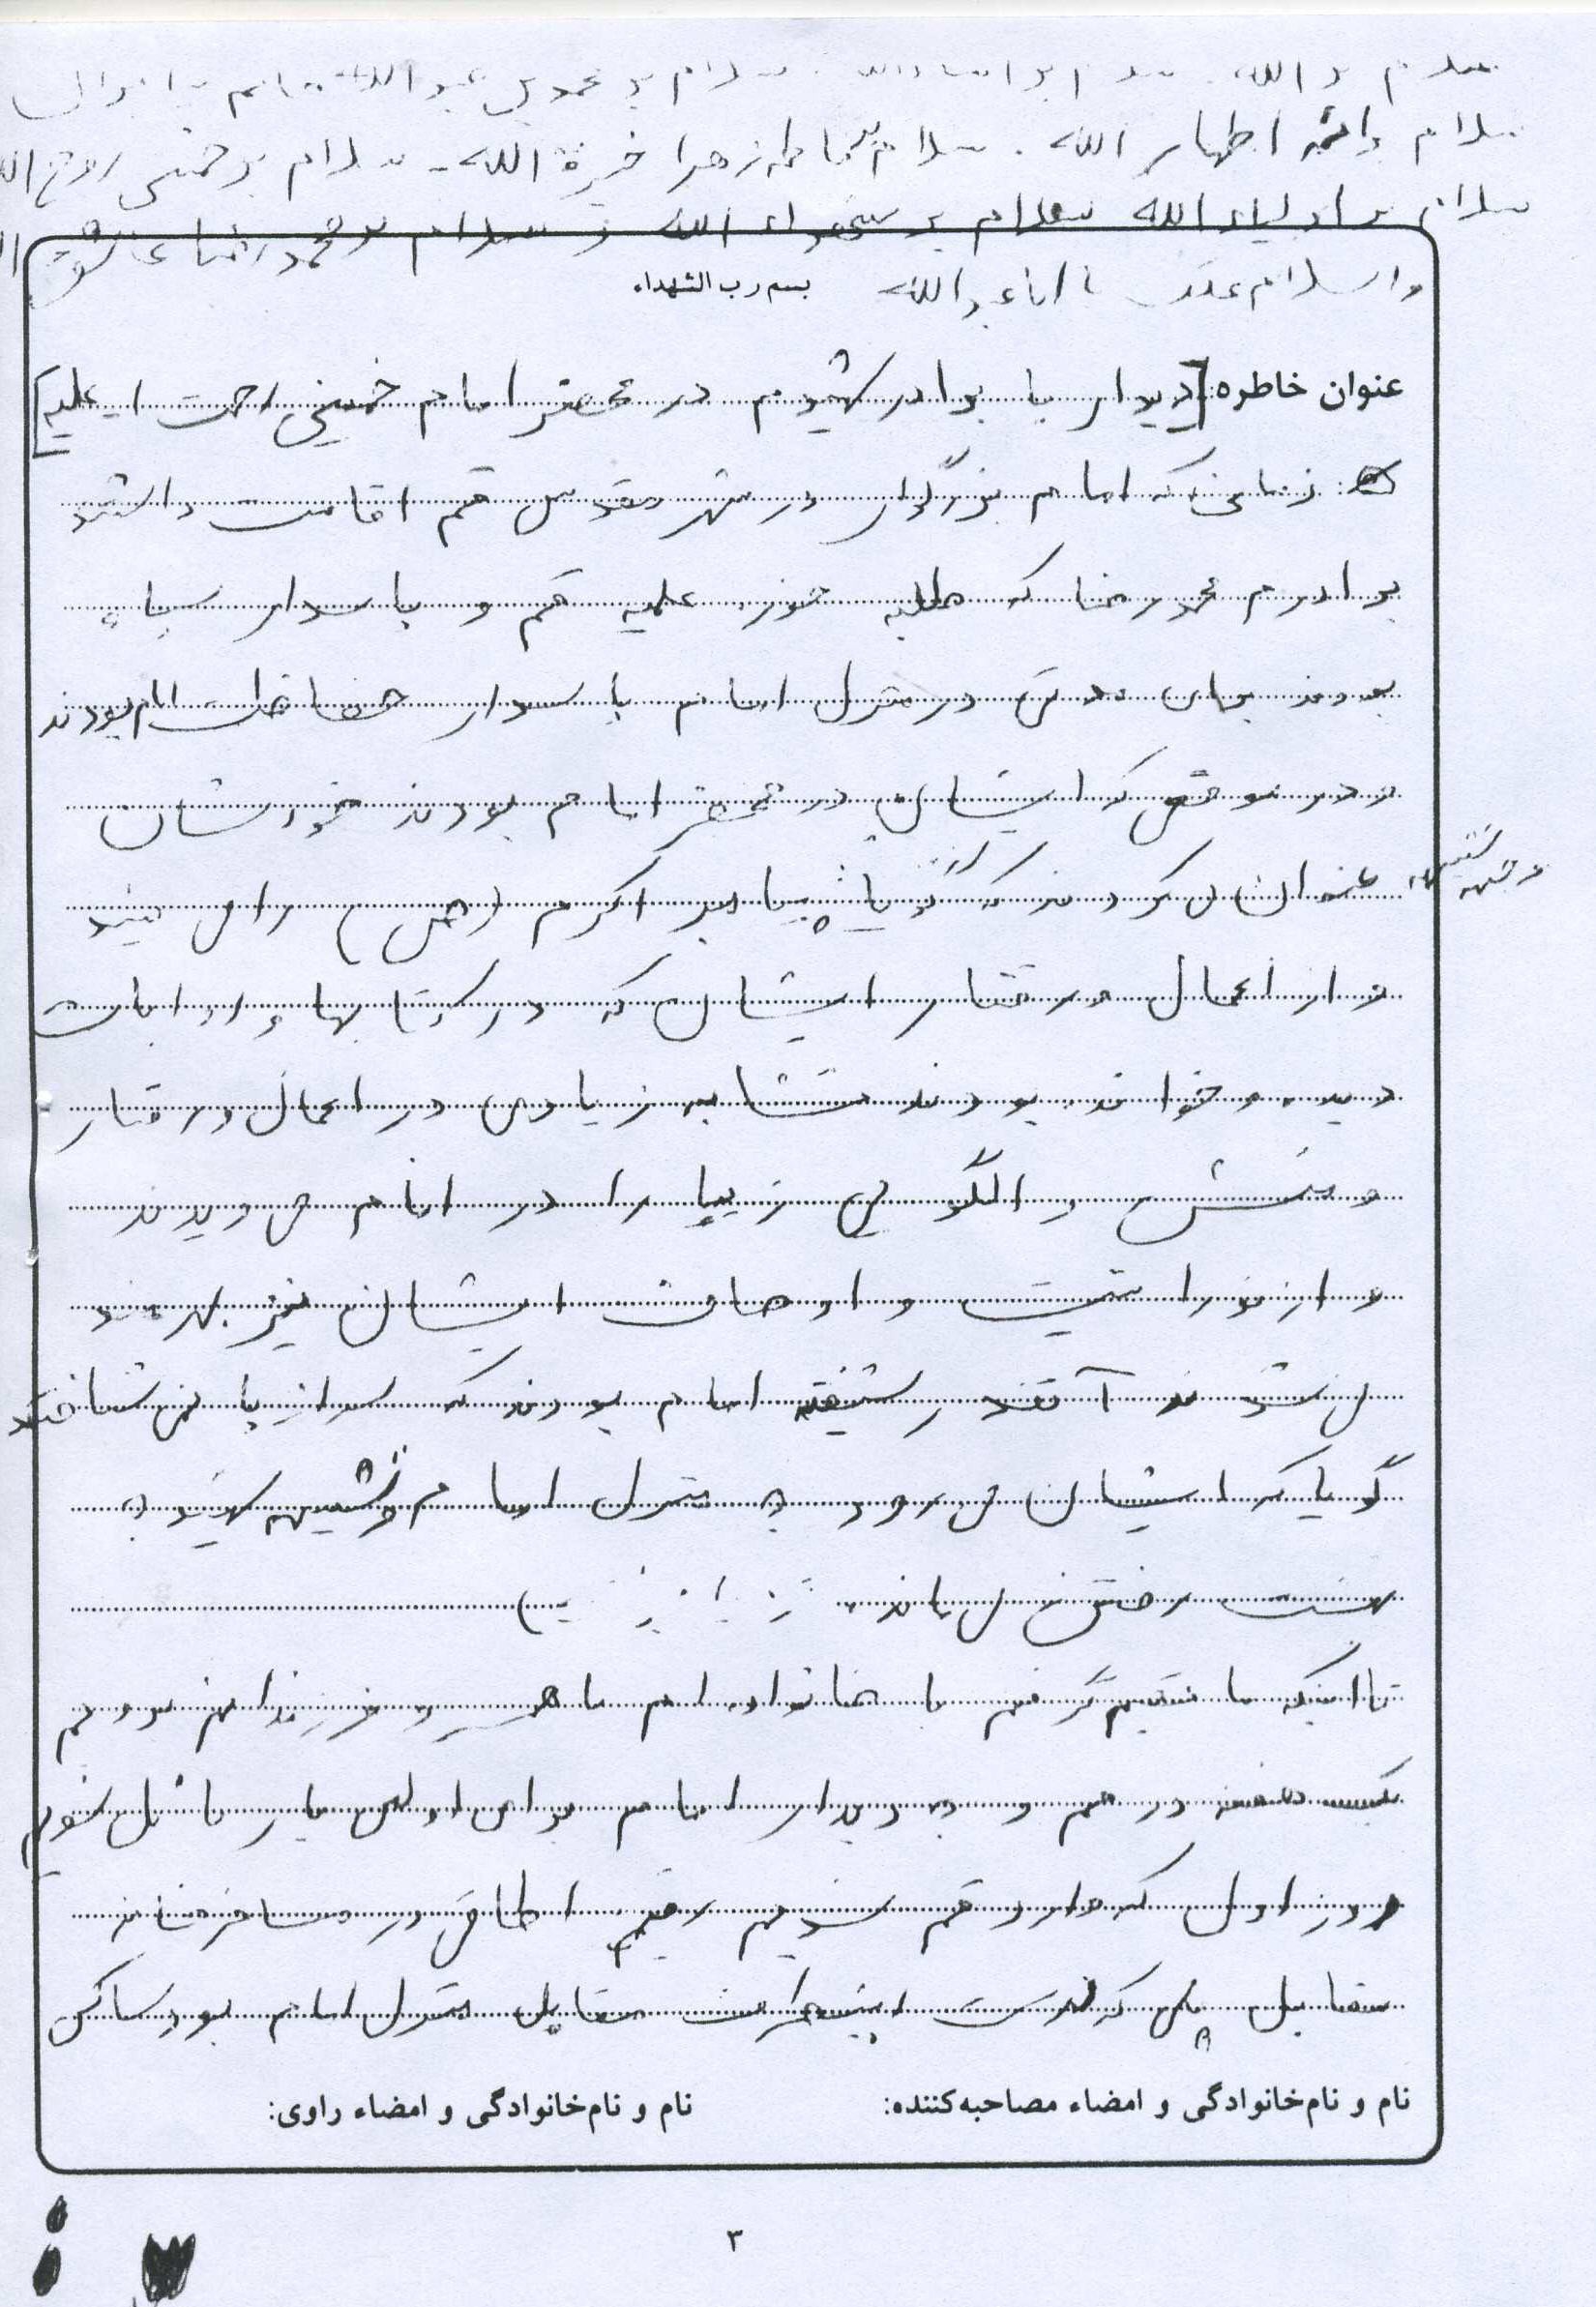 سلام بر الله. سلام بر محمد بن عبدالله
سلام و ائمه اطهار الله. سلام بر فاطمه زهرا خیرة الله. سلام بر خمینی روح الله
سلام بر اولیاء الله سلام بر شهداء الله و سلام بر محمدرضا عاشق
والسلام علیک یا اباعبدالله
بسم رب الشهداء
عنوان خاطره [دیدار با برادر شهیدم در محضر امام خمینی رحمت ا... علیه]
زمانی که امام بزرگوار در شهر مقدس قم اقامت داشتند
برادرم محمدرضا که طلبه حوزه علمیه قم و پاسدار سپاه
بودند برای مدتی در منزل امام پاسدار حفاظت امام بودند
و در موقعی که ایشان در محضر امام بودند خودشان
عنوان کردند که گویا پیامبر اکرم (ص) را می بیند
و از اعمال و رفتار ایشان که در کتابها و روایات
دیده و خوانده بودند تشابه زیادی در اعمال و رفتار
و منش و الگویی زیبا را در امام می دیدند
و از نورانیت و اوصاف ایشان نیز بهره مند
می شدند آنقدر شیفته امام بودند که سر از پا نمی شناختند
گویا که ایشان می رود به منزل امام تشبیه کنید به
بهشت رفتن می ماند.
تا اینکه ما تصمیم گرفتیم با خانواده ام با همسر و فرزندانم برویم
یک هفته در قم و به دیدار امام برای اولین بار نائل شویم
روز اول که وارد قم شدیم رفتیم اطاقی در مسافرخانه
مقابل پلی که درست مقابل منزل امام بود ساکن
نام و نام خانوادگی و امضاء مصاحبه کننده:
نام و نام خانوادگی و امضاء راوی:
۳